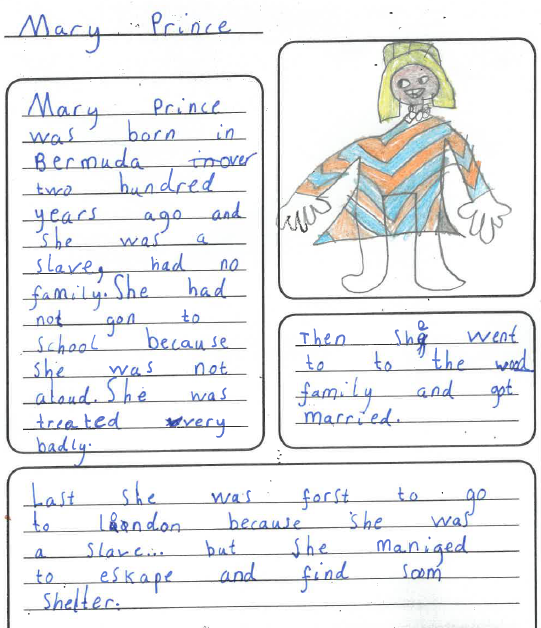 Mary Prince
Mary Prince
was born in
Bermuda in over
two hundred
years ago and
she was a
slave, had no
family. She had
not gon to
school because
she was not
aloud. She was
treated very
badly.
Then she went
to to the wood
family and got
married.
Last she was forst to go
to london because she was
a slave... but she maniged
to eskape and find soom
shelter.